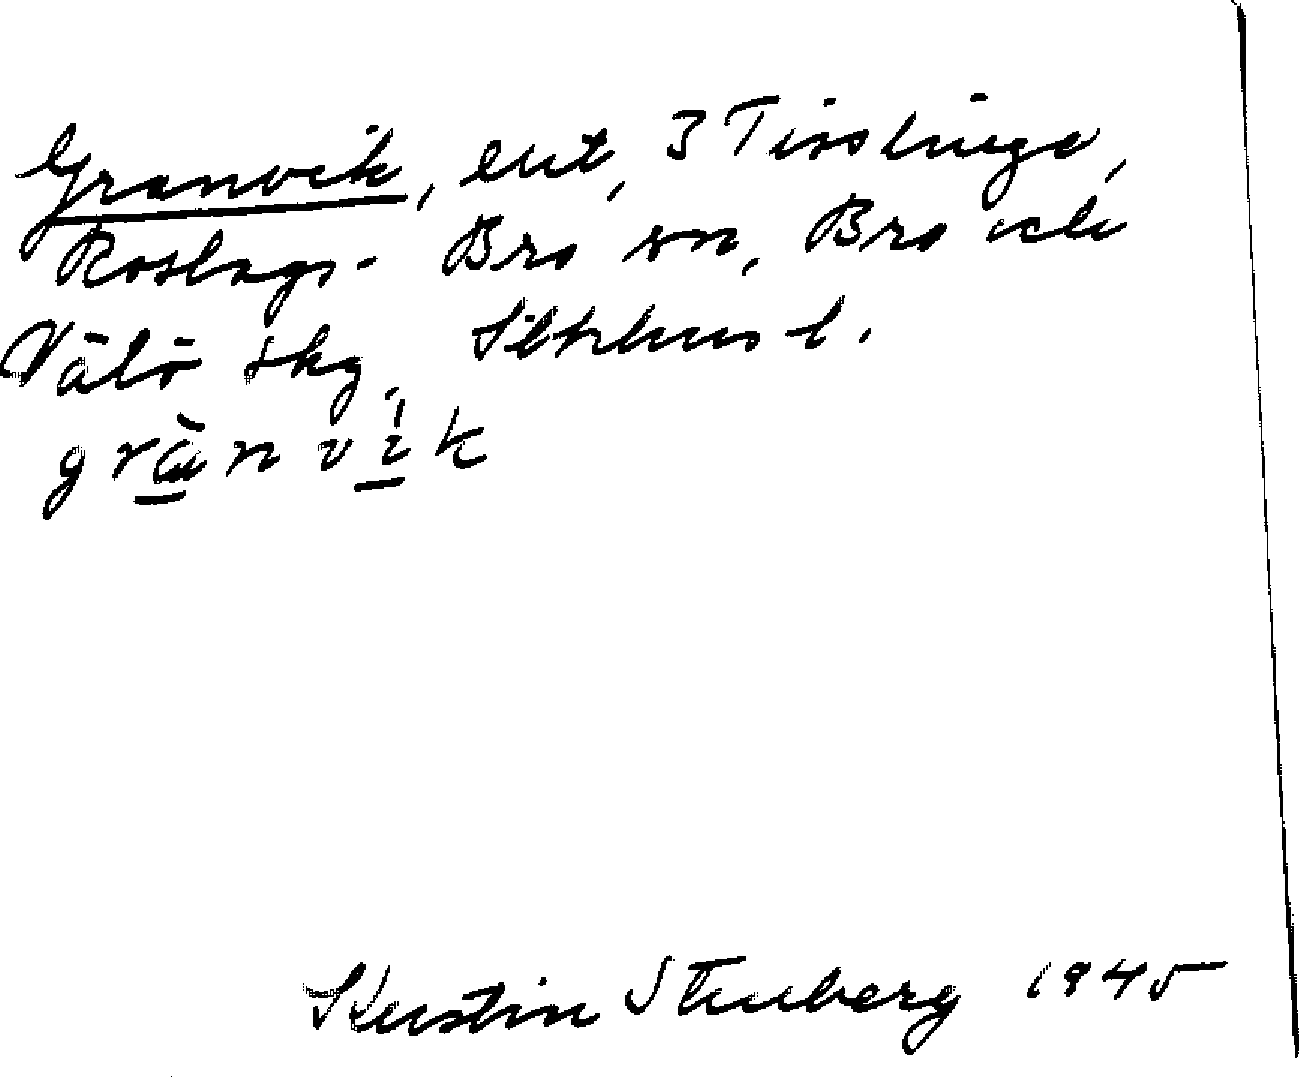 Granvik, lht, 3 Tisslinge,
Roslags-Bro sn, Bro och
Vätö skg, Sthlms l.
grànvík
Kerstin Stenberg 1945